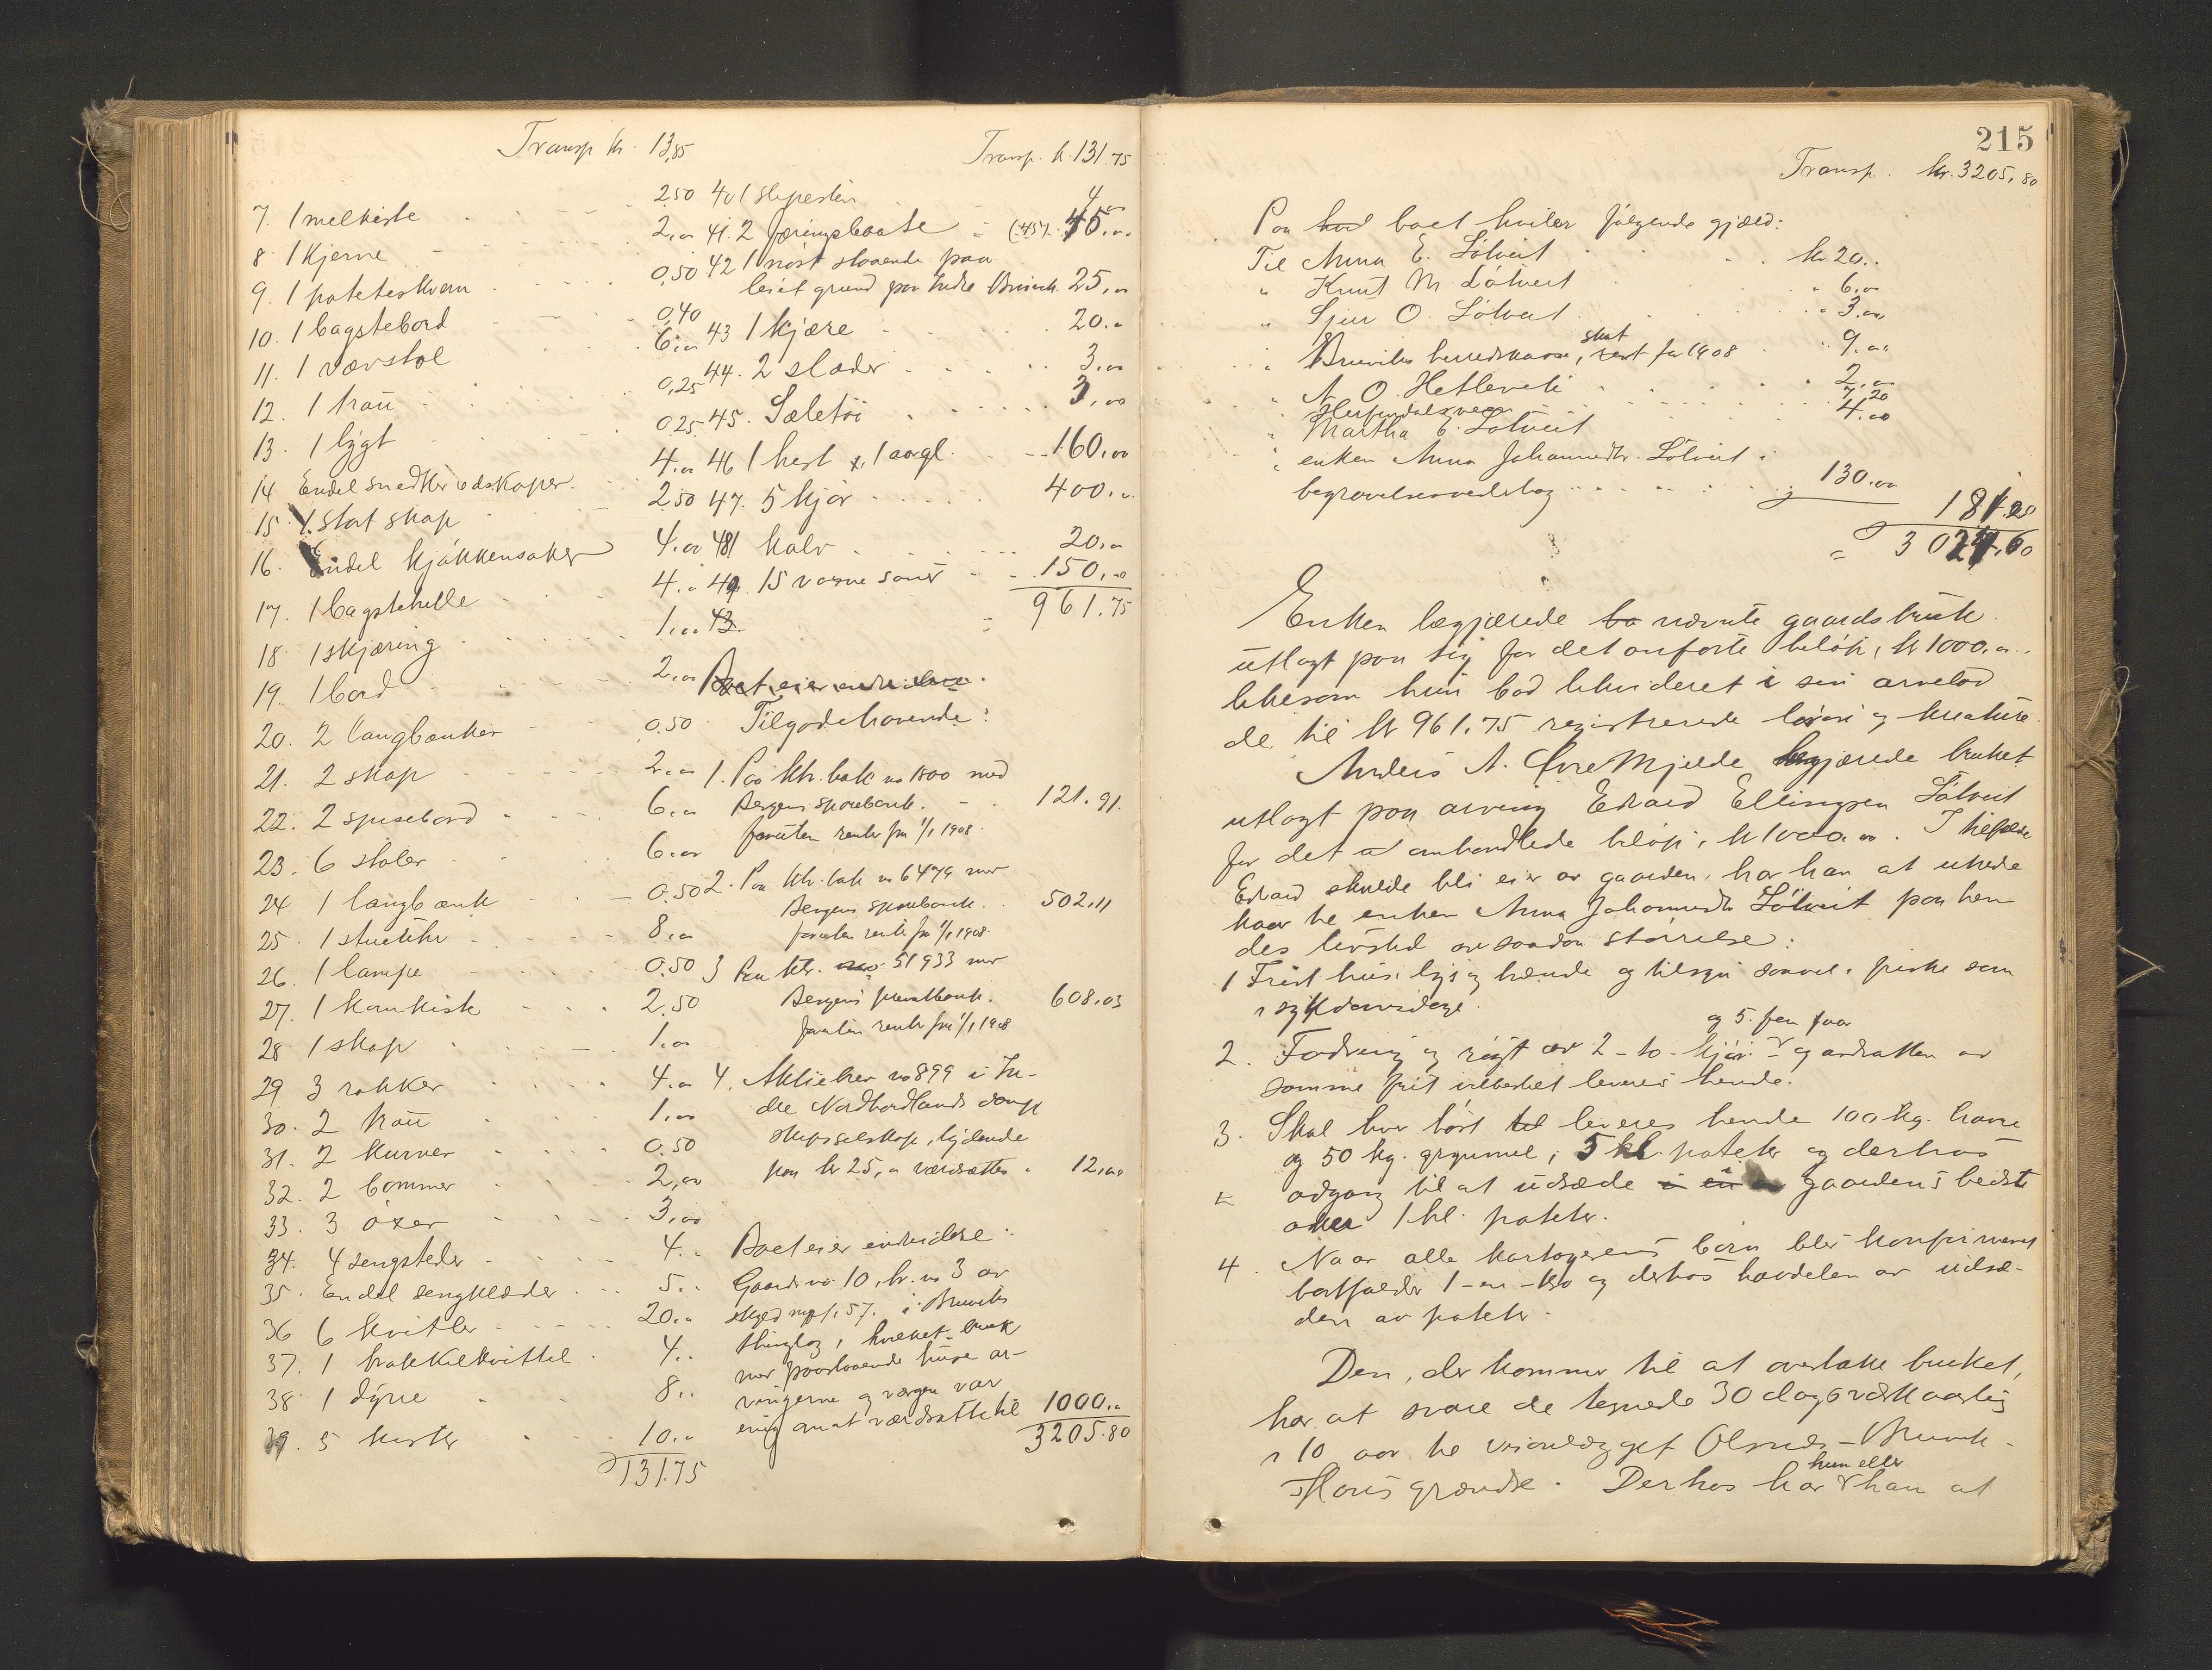 Transp kr. 13,85
7. 1 melkiste 2.50
8. 1 kjerne 2,00
9. 1 poteteskvern 0,50
10. 1 bagstebord 0,40
11. 1 vævstol 6,00
12. 1 trau 0,25
13. 1 lygt 0.25
14 Endel snedkerredskaper 4.00
15. 1. slat skap 2.50
16. Endel kjøkkensaker 4.00
17. 1 bagstehelle 4.00
18. 1 skjæring 1.00
19. 1 bord 2,00
20. 2 langbænker 0.50
21. 2 skap 2,00
22. 2 spisebord 6,00
23. 6 stoler 6.00
24. 1 langbænk 0.50
25. 1 stueuhr 8,00
26. 1 lampe 0.50
27. 1 kornkiste 2.50
28. 1 skap 1,00
29 3 rokker 4,00
30. 2 trau 1,00
31. 2 kurver 0.50
32. 2 bommer 2,00
33. 3 øxer 3,00
34. 4 sengsteder 4..
35. Endel sengklæder 5..
36 6 kvitler 20.00
37. 1 brokkelkvittel 4..
38. 1 dyne 8..
39. 5 kister 10.00
131.75
Transp. kr. 131.75
40 1 slipesten 4
41. 2 færingsbaate (45) 45.00
42 1 nøst staaende paa
leiet grund paa Indre Bruvik 25,00
43 1 kjære 20.00
44. 2 slæder 3,00
45. Sæletøi 3,00
46 1 hest, 1 aargl. 160,00
47. 5 kjør 400,00
48 1 kalv 20,00
49. 15 voxne sauer 150,00
43. = 961.75
Boet eier endvidere.
Tilgodehavende:
1. Paa ktr. bok no 1500 med
Bergens sparebank. 121.91.
foruten renter fra 1/1 1908.
2. Paa ktr. bok no 6479 mor
Bergens sparebank. 502,11
foruten renter fra 1/1 1908.
3 Paa ktr. no 51933 mor
Bergens privatbank. 608,03
foruten renter fra 1/1 1908
4. Aktiebrev no 899 i In-
dre Nordhordlands damp
skipsselskap, lydende
paa kr 25,00 værdsættes 12,00
Boet eier endvidere:
Gaards no. 10, br. no 3 av
skyld mk 1.57. i Bruviks
thinglag, hvilket bruk
mor paastaaende huse ar-
vingerne og værgen var
enig om at værdsætte til 1000.00
3205.80
215
Transp. kr. 3205.80
Paa hvd boet hviler følgende gjæld:
Til Anna E. Løtveit kr 20..
" Knut M. Løtveit 6,00
" Sjur O. Løtveit 3.00
" Bruviks herredskasse, skat rest for 1908 9.00
" A. O. Hetleveit 2,00
Herfindalsveien 7,20
" Martha E. Løtveit 4.00
" enken Anna Johannesdtr. Løtveit i
begravelsesvederlag 130.00
181.20
= 3024,60
Enken begjærede bo nævnte gaardsbruk
utlagt paa sig for det anførte beløp, kr 1000.00,
likesom hun bad likvideret i sin arvelod
de til kr 961.75 registrerede løsøre og kreature.
Anders A. Øvre Mjelde begjærede bruket
utlagt paa arving Edvard Ellingsen Løtveit
for det omhandlede beløp, kr 1000.00. I tilfælde
Edvard skulde bli eier av gaarden, har han at utrede
kaar til enken Anna Johannesdtr Løtveit paa hen
des livstid av saadan størrelse:
1 Frit hus, lys og brænde og tilsyn saavel i friske som
i sykdomsdage.
2. Fodring og røgt av 2 - to - kjør og 5. fem faar og avdratten av
samme frit utarbeidet leveres hende.
3. Skal hver høst til leveres hende 100 kg. havre
og 50 kg. grynmel, 5 hl. poteter og derhos
adgang til at utsæde i en gaardens bedste
aker 1 hl. poteter.
4. Naar alle kaartagerens børn blir konfirmeret
bortfalder 1 - en - ko og derhos havdelen av utsæ-
den av poteter.
Den, der kommer til at overtake bruket,
har at svare de tegnede 30 dagsverk aarlig
i 10 aar til veianlægget Olsnes - Bruvik -
Hous grændse. Derhos har hun eller han at